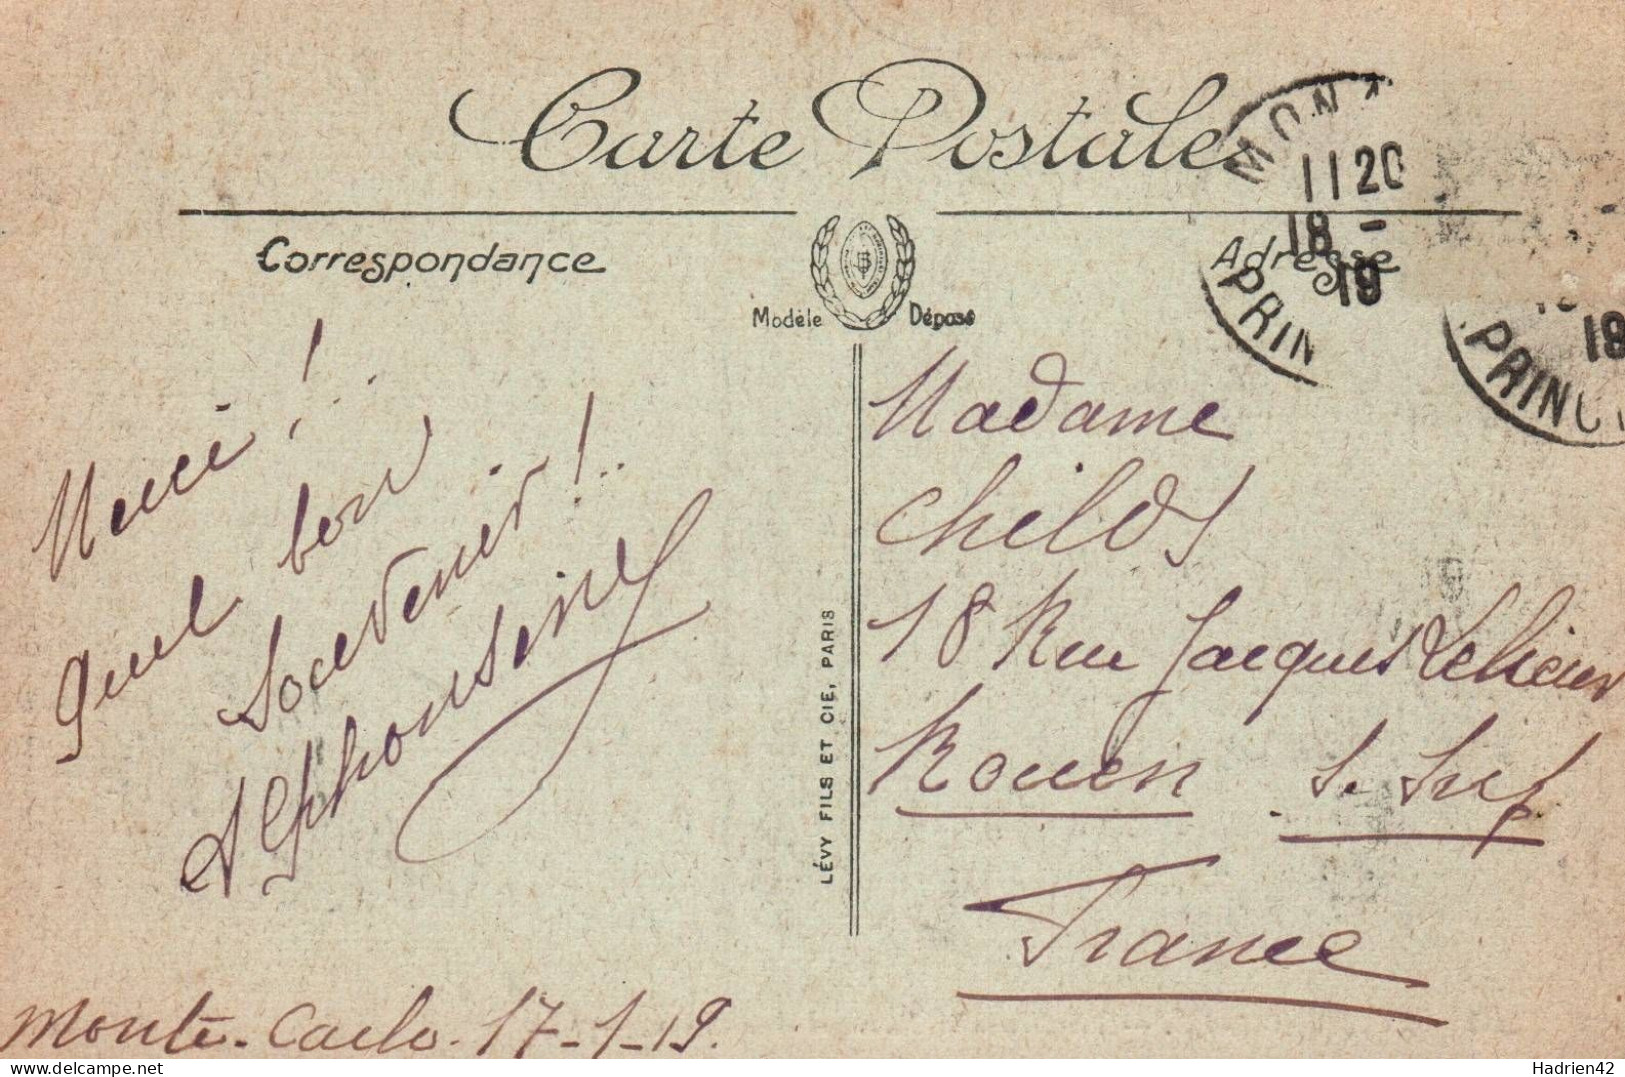 Carte Postale
Correspondance
Adresse
Modèle Déposé
MON
11 20
18 -
19
PRIN
19
PRINC
Merci !
Quel bon
Souvenir !..
Alphonsine
Monte-Carlo. 17-1-19.
LÉVY FILS ET CIE, PARIS
Madame
Childs
18 Rue Jacques Lelieur
Rouen S. Inf
France
Hadrien42